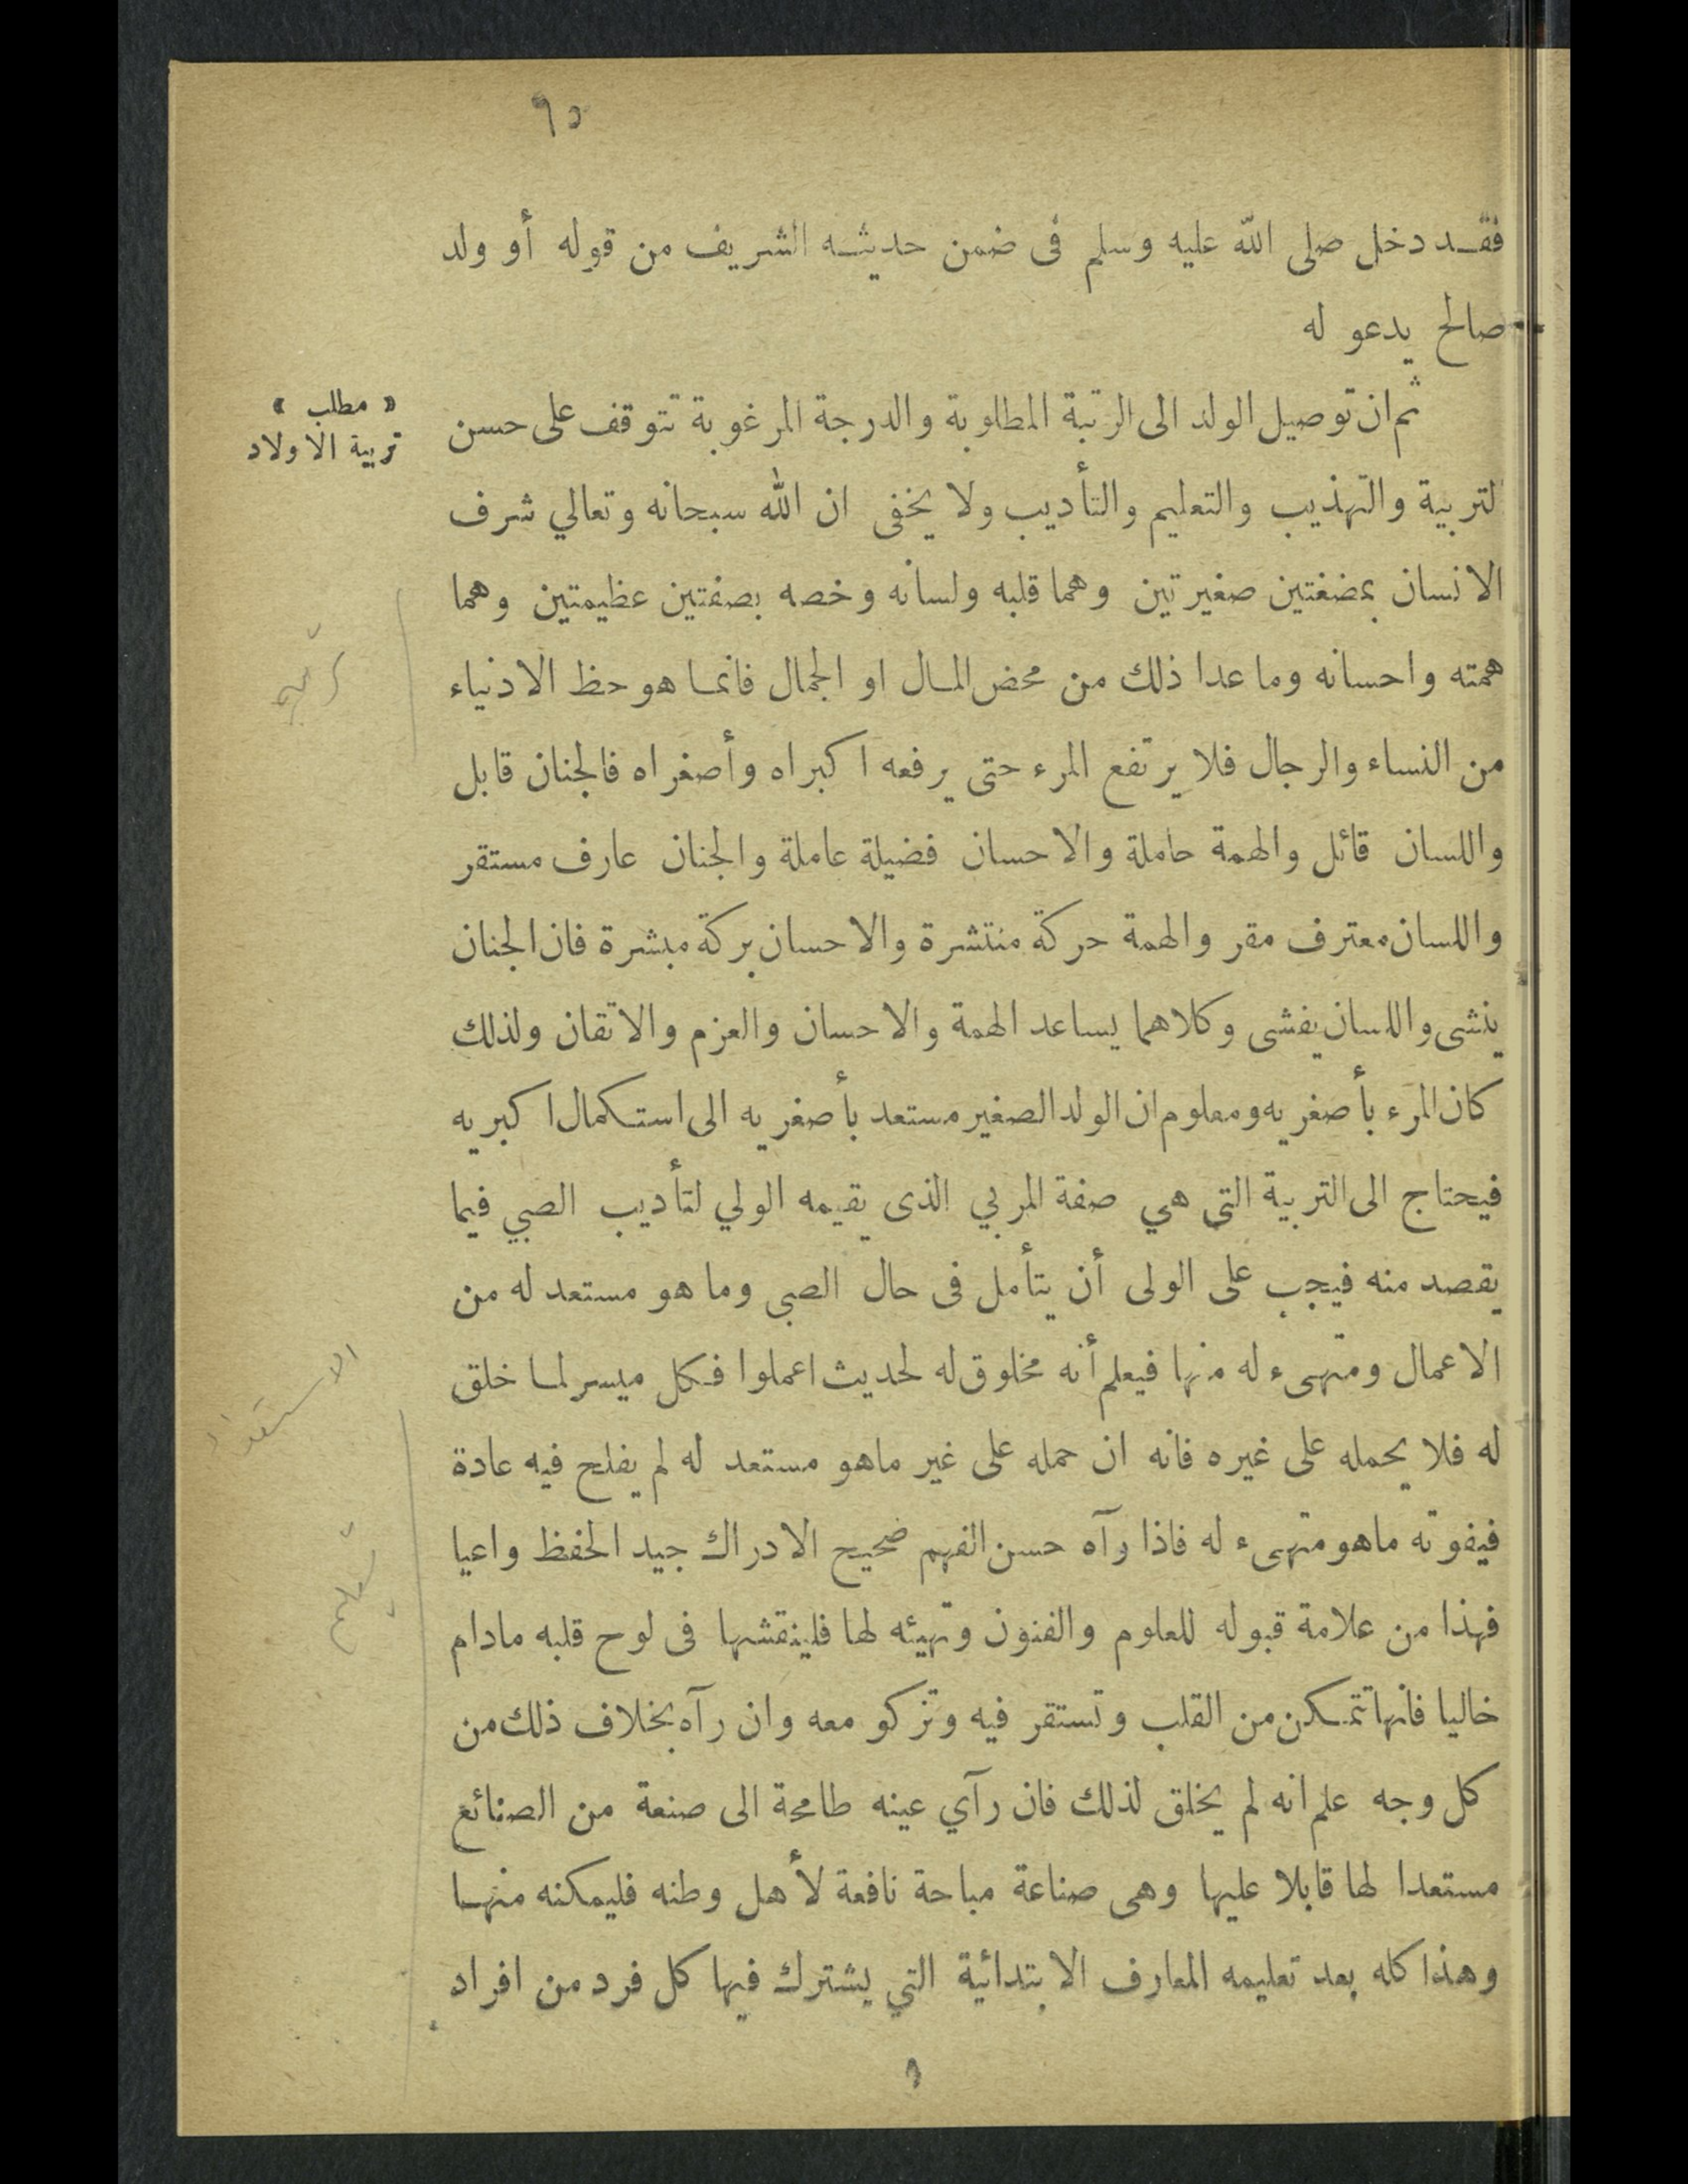 ٦٥
فقد دخل صلى الله عليه وسلم فى ضمن حديثه الشريف من قوله أو ولد
صالح يدعو له
ثم ان توصيل الولد الى الرتبة المطلوبة والدرجة المرغوبة تتوقف على حسن
« مطلب »
تربية الاولاد
لتربية والتهذيب والتعليم والتأديب ولا يخفى ان الله سبحانه وتعالي شرف
الانسان بمضغتين صغيرتين وهما قلبه ولسانه وخصه بصفتين عظيمتين وهما
همته واحسانه وما عدا ذلك من محض المال او الجمال فانما هو حظ الادنياء
من النساء والرجال فلا يرتفع المرء حتى يرفعه اكبراه وأصغراه فالجنان قابل
واللسان قائل والهمة حاملة والاحسان فضيلة عاملة والجنان عارف مستقر
واللسان معترف مقر والهمة حركة منتشرة والاحسان بركة مبشرة فان الجنان
ينشى واللسان يفشى وكلاهما يساعد الهمة والاحسان والعزم والاتقان ولذلك
كان المرء بأصغريه ومعلوم ان الولد الصغير مستعد بأصغريه الى استكمال اكبريه
فيحتاج الى التربية التي هي صفة المربي الذى يقيمه الولي لتأديب الصبي فيما
يقصد منه فيجب على الولى أن يتأمل فى حال الصبى وما هو مستعد له من
الاعمال ومتهىء له منها فيعلم أنه مخلوق له لحديث اعملوا فكل ميسر لما خلق
الاستعداد
له فلا يحمله على غيره فانه ان حمله على غير ماهو مستعد له لم يفلح فيه عادة
فيفوته ماهو متهىء له فاذا رآه حسن الفهم صحيح الادراك جيد الحفظ واعيا
فهذا من علامة قبوله للعلوم والفنون وتهيئه لها فلينقشها فى لوح قلبه مادام
خاليا فانها تتمكن من القلب وتستقر فيه وتزكو معه وان رآه بخلاف ذلك من
كل وجه علم انه لم يخلق لذلك فان رآي عينه طامحة الى صنعة من الصنائع
مستعدا لها قابلا عليها وهى صناعة مباحة نافعة لأهل وطنه فليمكنه منها
وهذا كله بعد تعليمه المعارف الابتدائية التي يشترك فيها كل فرد من افراد